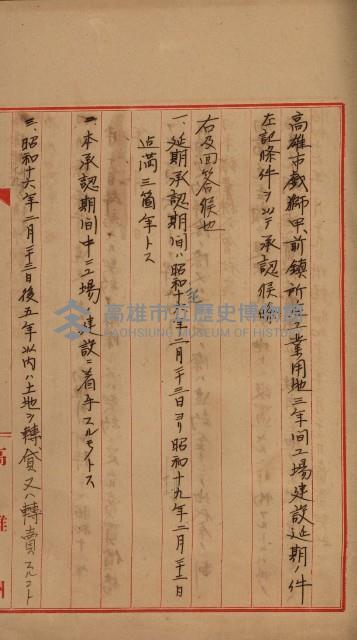 高雄市戯獅甲、前鎮所在工業用地三年间工場建設延期ノ件
左記條件ヲ以テ承認候條
右及回答候也
一、延期承認期间ハ昭和十六年二月二十三日ヨリ昭和十九年二月二十二日
迄満三箇年トス
二、本承認期间中ニ工場建設ニ着手スルモノトス
三、昭和十六年二月二十三日後五年以内ハ土地ヲ轉貸又ハ轉賣スルコト
高雄州
高雄市立歷史博物館
KAOHSIUNG MUSEUM OF HISTORY